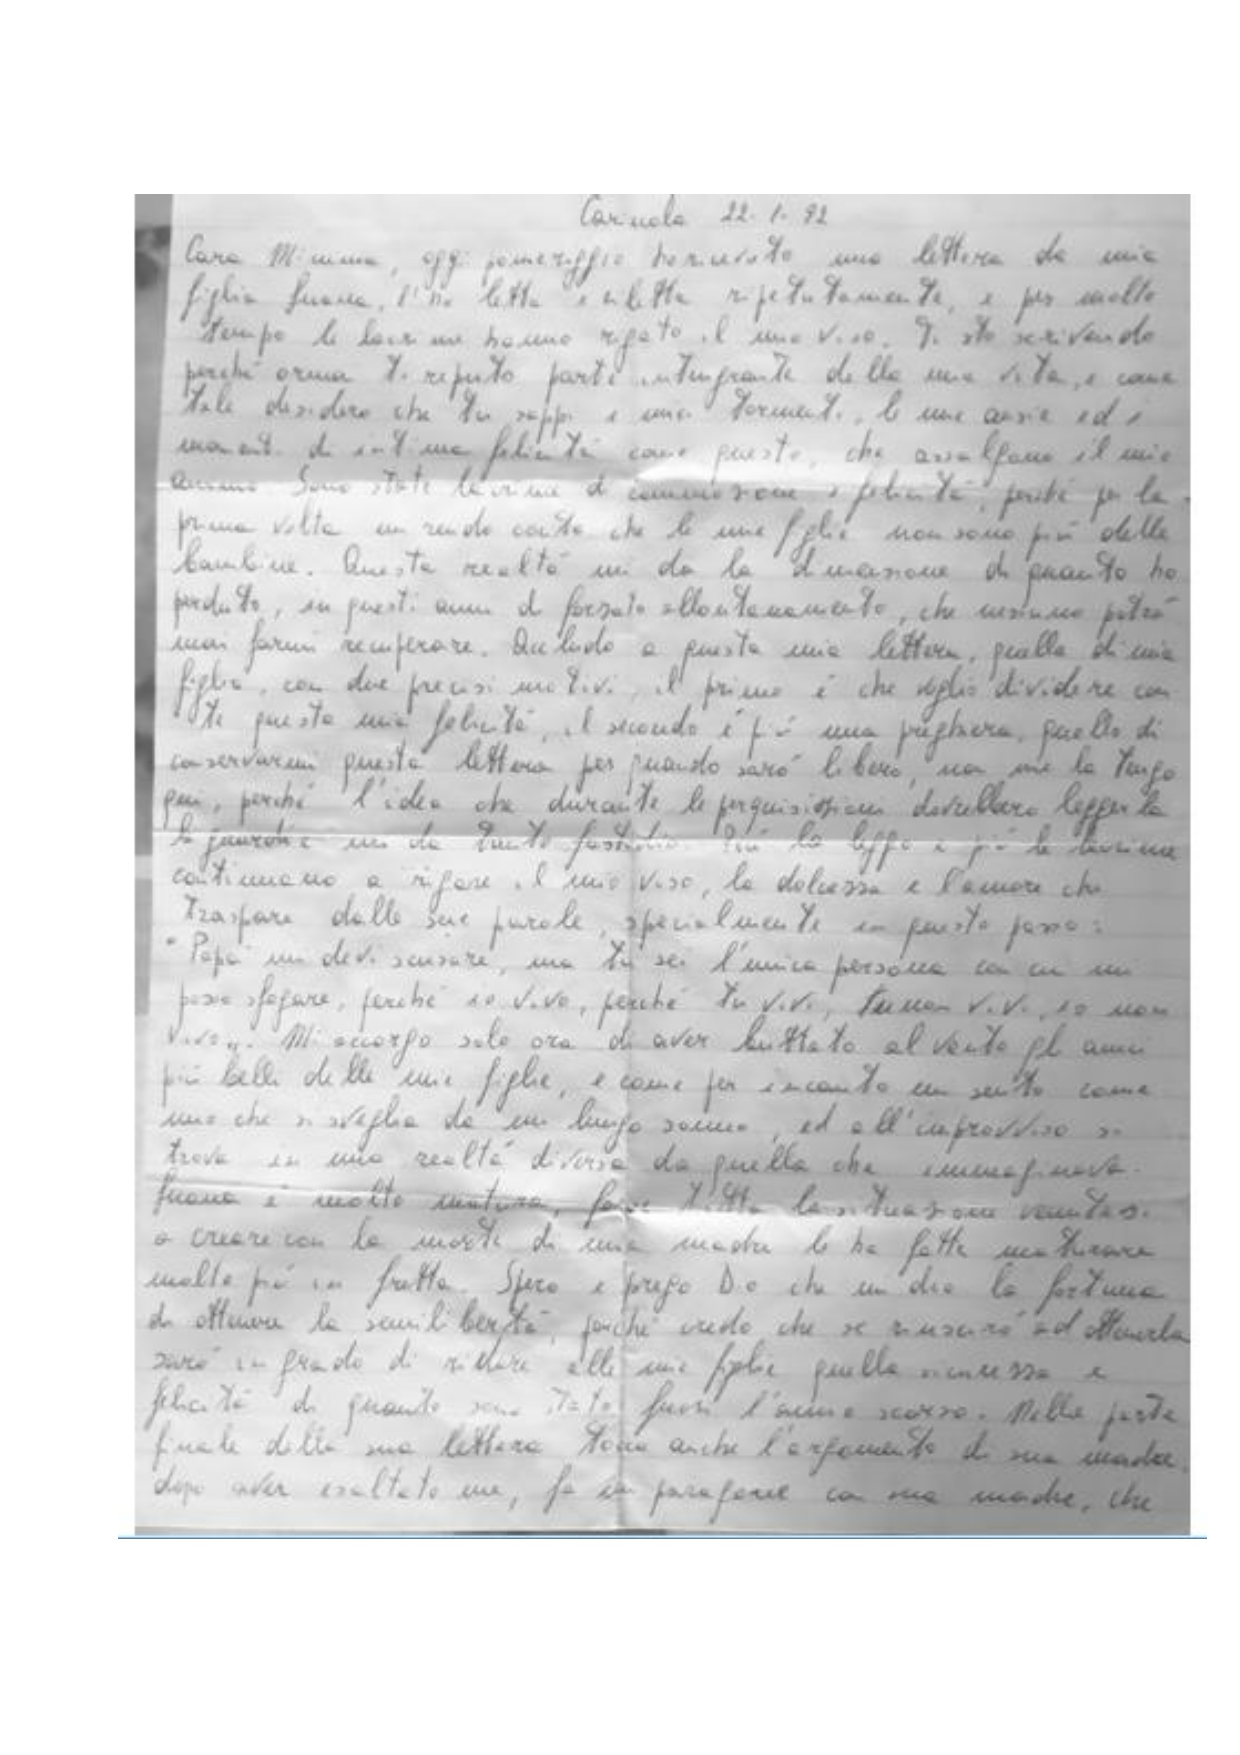 Carinola 22.1.92
Cara Mimma, oggi pomeriggio ho ricevuto una lettera da mia
figlia, l'ho letta e riletta ripetutamente, e per molto
tempo le lacrime hanno rigato il mio viso. Ti sto scrivendo
perché ormai ti reputo parte intengrante della mia vita, e come
tale desidero che tu sappi i miei tormenti, le mie ansie ed i
momenti di intima felicità come questo, che assalgano il mio
animo. Sono state lacrime di commozione e felicità, perché per la
prima volta mi rendo conto che le mie figlie non sono più delle
bambine. Questa realtà mi da la dimensione di quanto ho
perduto, in questi anni di forzato allontanamento, che nessuno potrà
mai farmi recuperare. Accludo a questa mia lettera, quella di mia
figlia, con due precisi motivi, il primo è che voglio dividere con
te questa mia felicità, il secondo è più una preghiera, quello di
conservarmi questa lettera per quando sarò libero, non me la tengo
qui, perché l'idea che durante le perquisizioni dovrebbero leggerla
le guardie mi da tanto fastidio. Più la leggo e più le lacrime
continuano a rigare il mio viso, la dolcezza e l'amore che
traspare dalle sue parole, specialmente in questo passo:
" Papà mi devi scusare, ma tu sei l'unica persona con cui mi
posso sfogare, perché io vivo, perché tu vivi, tu non vivi, io non
vivo„. Mi accorgo solo ora di aver buttato al vento gli anni
più belli delle mie figlie, e come per incanto mi sento come
uno che si sveglia da un lungo sonno, ed all'improvviso si
trova in una realtà diversa da quella che immaginava.
è molto matura, forse tutta la situazione venutasi
a creare con la morte di mia madre le ha fatte maturare
molto più in fretta. Spero e prego Dio che mi dia la fortuna
di ottenere la semilibertà, poiché credo che se riuscirò ad ottenerla
sarò in grado di ridare alle mie figlie quella sicurezza e
felicità di quanto sono stato fuori l'anno scorso. Nella parte
finale della sua lettera tocca anche l'argomento di sua madre,
dopo aver esaltato me, fa un paragone con sua madre, che